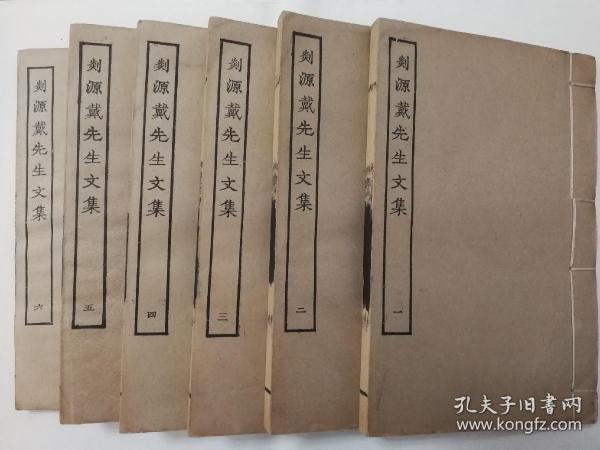 剡源戴先生文集
一
剡源戴先生文集
二
剡源戴先生文集
三
剡源戴先生文集
四
剡源戴先生文集
五
剡源戴先生文集
六
孔夫子旧书网
www.kongfz.com